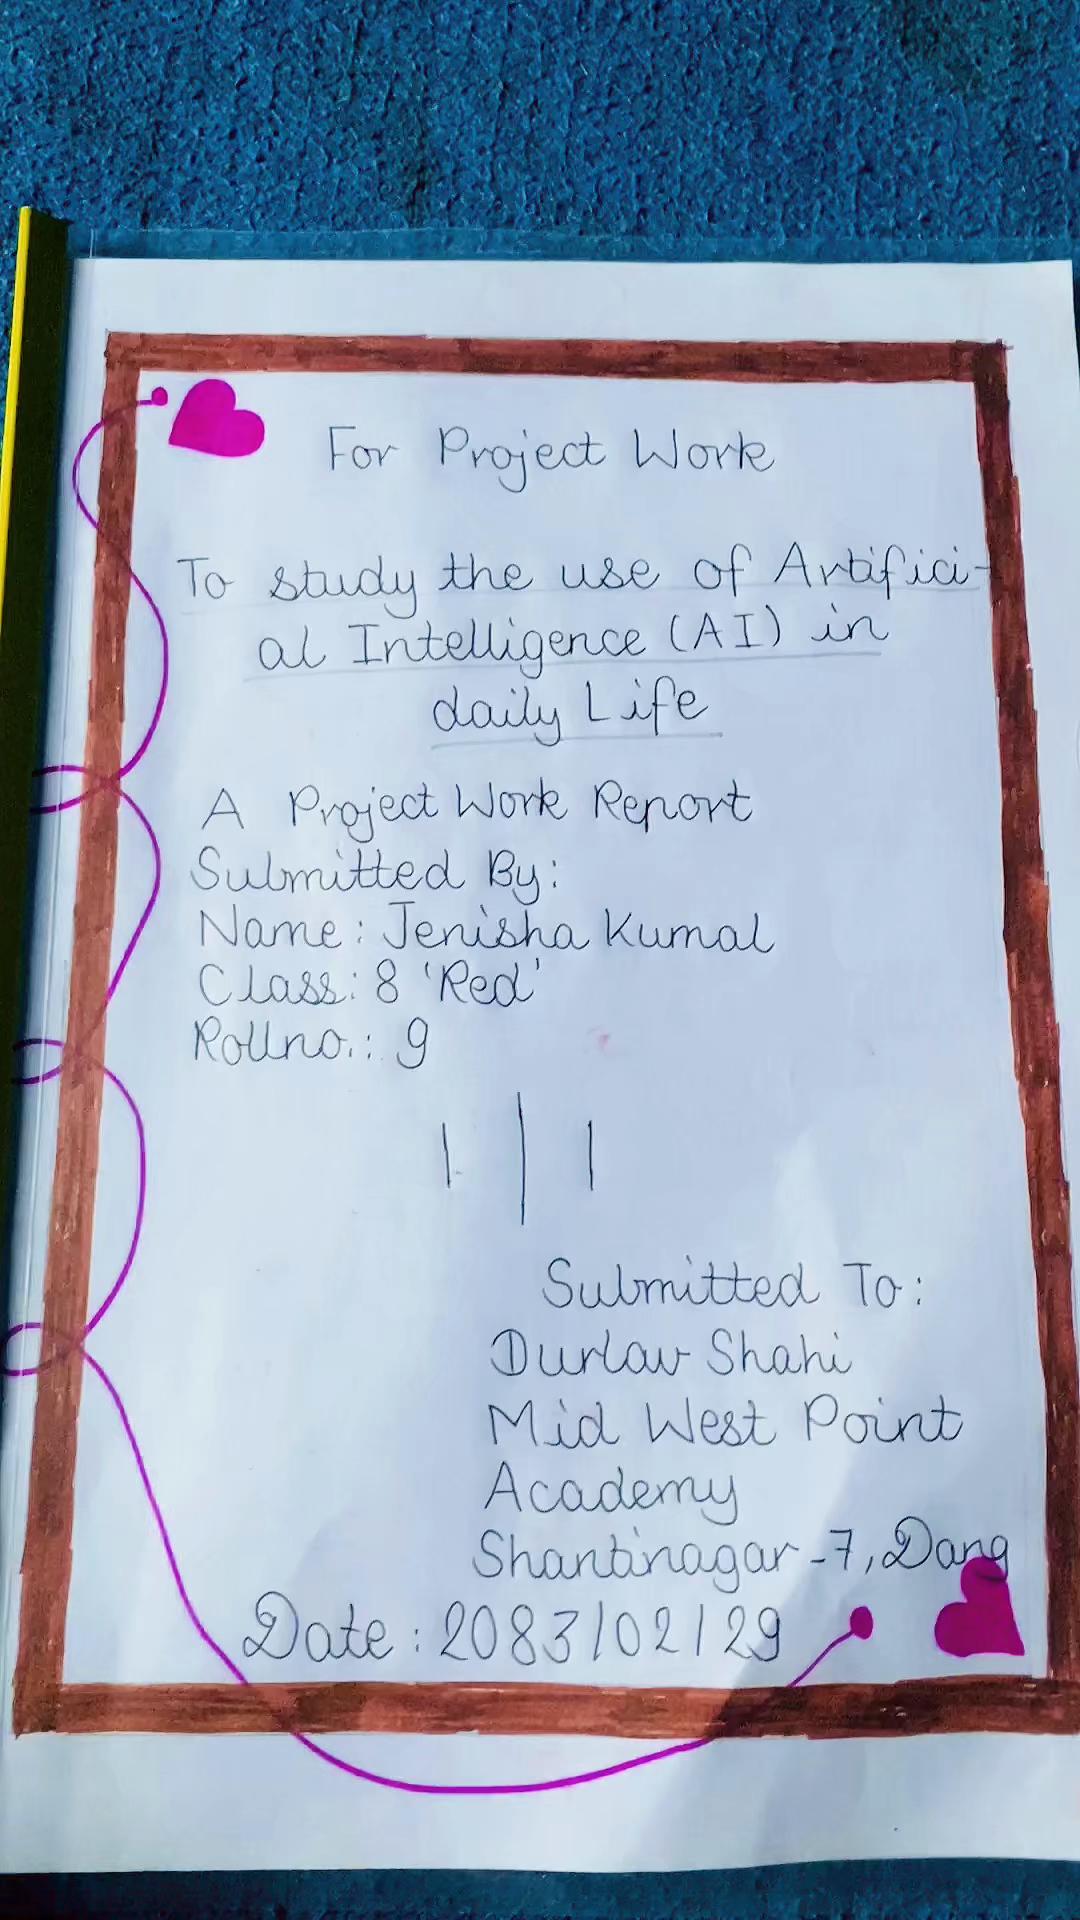 For Project Work
To study the use of Artifici-
al Intelligence (AI) in
daily Life
A Project Work Report
Submitted By:
Name: Jenisha Kumal
Class: 8 'Red'
Rollno.: 9
Submitted To:
Durlav Shahi
Mid West Point
Academy
Shantinagar-7, Dang
Date: 2083/02/29